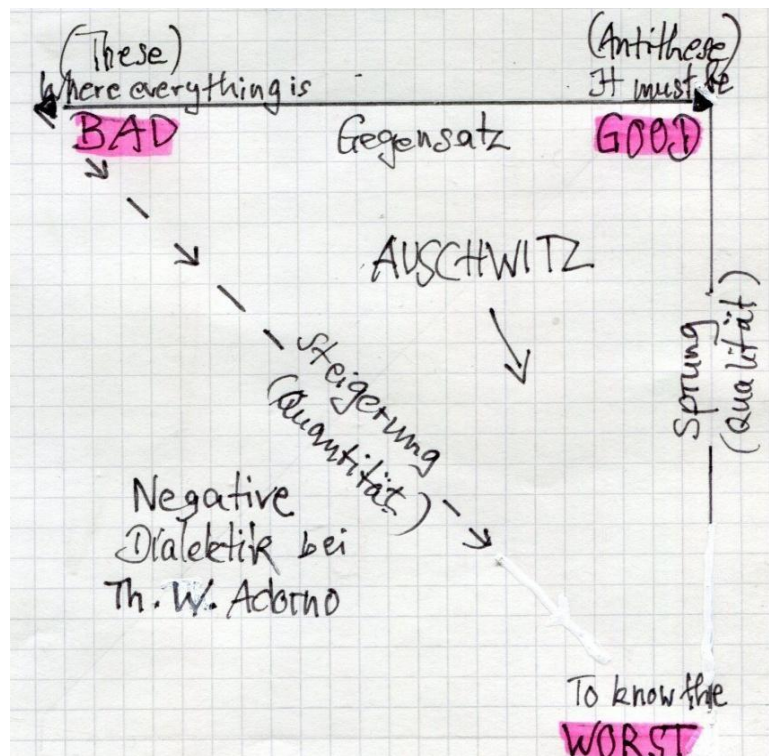 (These)
Where everything is
BAD
Gegensatz
(Antithese)
It must be
GOOD
AUSCHWITZ
Steigerung
(Quantität)
Sprung
(Qualität)
Negative
Dialektik bei
Th. W. Adorno
To know the
WORST